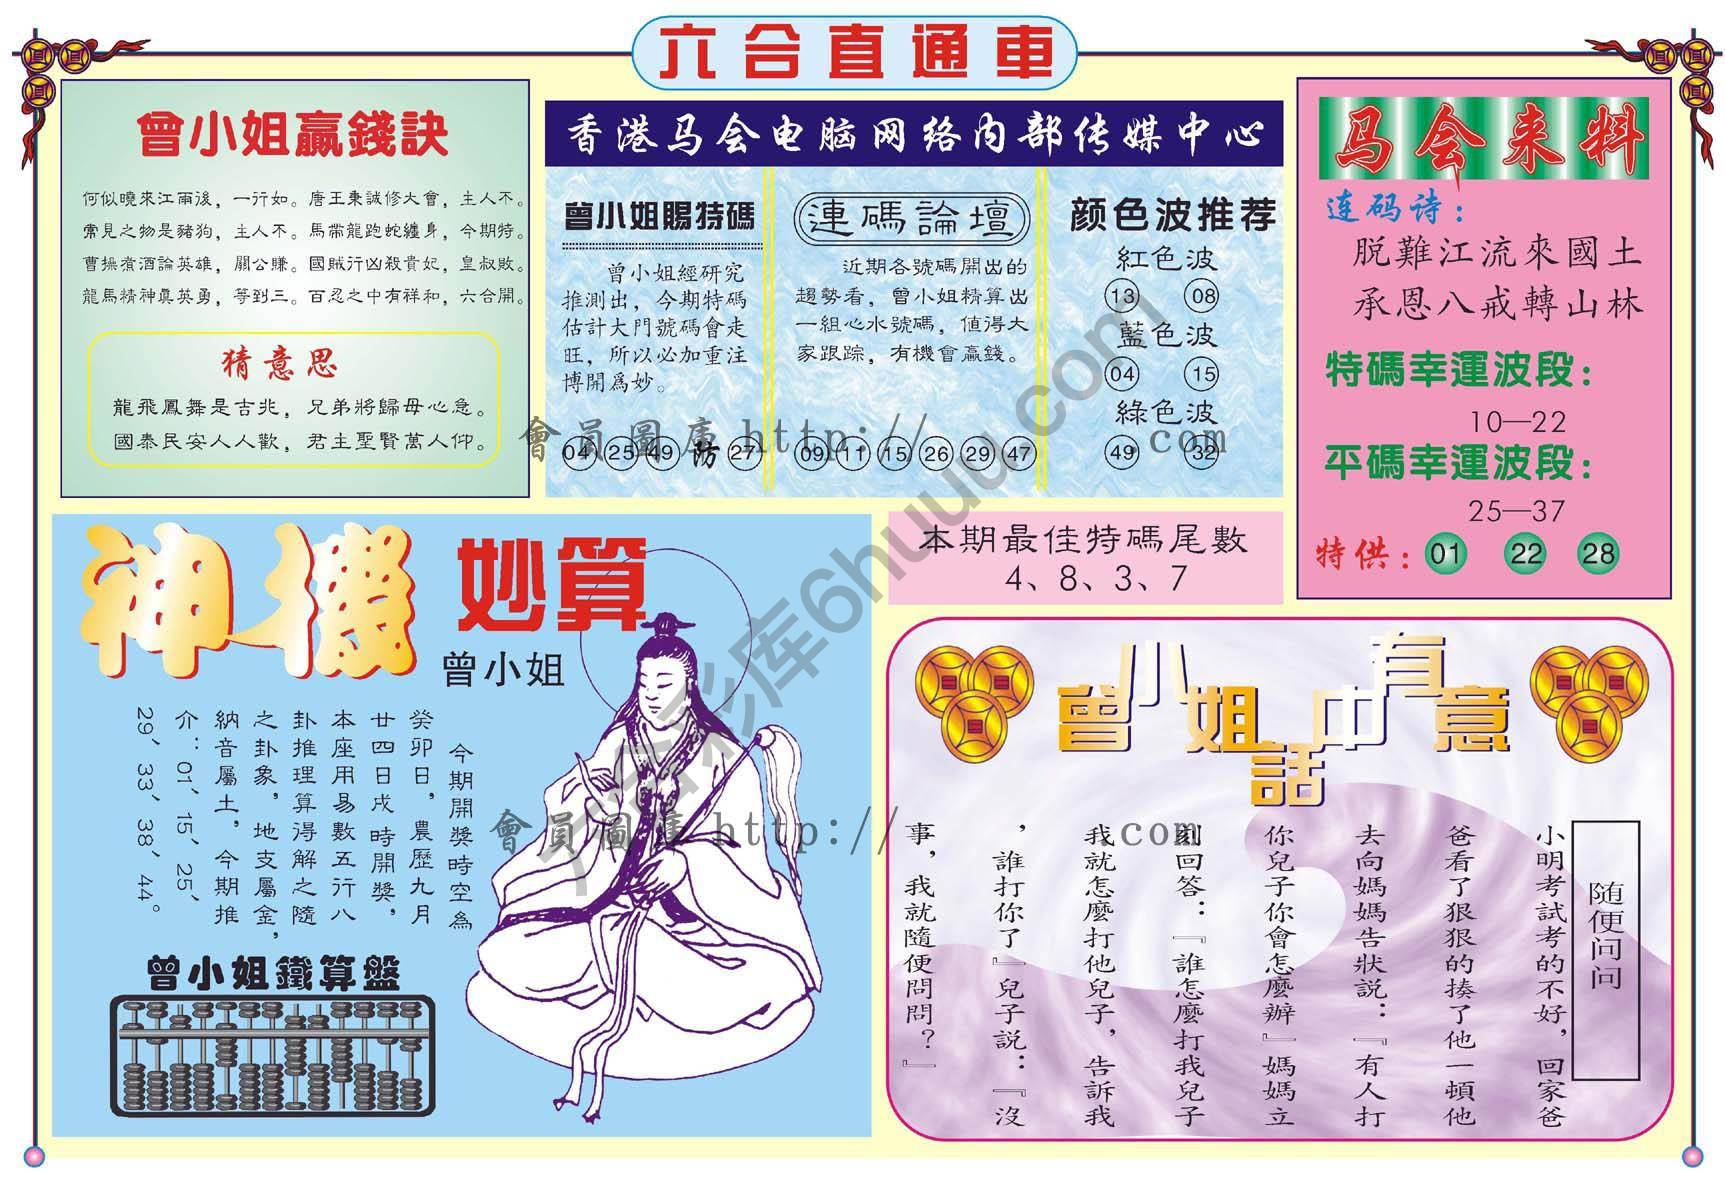 六合直通車
曾小姐贏錢訣
何似曉來江雨後，一行如。唐王秉誠修大會，主人不。
常見之物是豬狗，主人不。馬帶龍跑蛇纏身，今期特。
曹操煮酒論英雄，關公賺。國賊行凶殺貴妃，皇叔敗。
龍馬精神真英勇，等到三。百忍之中有祥和，六合開。
猜意思
龍飛鳳舞是吉兆，兄弟將歸母心急。
國泰民安人人歡，君主聖賢萬人仰。
香港马会电脑网络内部传媒中心
曾小姐賜特碼
曾小姐經研究
推測出，今期特碼
估計大門號碼會走
旺，所以必加重注
博開爲妙。
04 25 49 防 27
連碼論壇
近期各號碼開出的
趨勢看，曾小姐精算出
一組心水號碼，值得大
家跟踪，有機會贏錢。
09 11 15 26 29 47
颜色波推荐
紅色波
13 08
藍色波
04 15
綠色波
49 32
马会来料
连码诗：
脱難江流來國土
承恩八戒轉山林
特碼幸運波段：
10—22
平碼幸運波段：
25—37
特供：01 22 28
本期最佳特碼尾數
4、8、3、7
神機妙算
曾小姐
今期開獎時空為
癸卯日，農歷九月
廿四日戌時開獎，
本座用易數五行八
卦推理算得解之隨
之卦象，地支屬金，
納音屬土，今期推
介：01、15、25、
29、33、38、44。
曾小姐鐵算盤
曾小姐話中有意
随便问问
小明考試考的不好，回家爸
爸看了狠狠的揍了他一頓他
去向媽媽告狀説：『有人打
你兒子你會怎麼辦』媽媽立
刻回答：『誰怎麼打我兒子
我就怎麼打他兒子，告訴我
，誰打你了』兒子説：『沒
事，我就隨便問問？』
會員圖庫 http:// .com
會員圖庫 http:// .com
六合彩库6huu.com